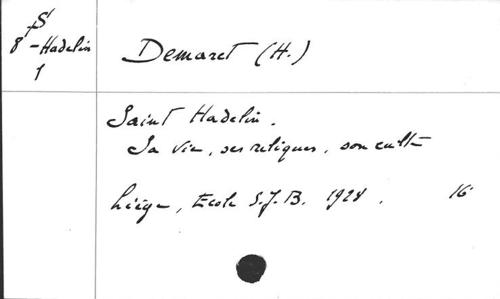 S
8 - Hadelin
1
Demaret (H.)
Saint Hadelin.
Sa vie, ses reliques, son culte
Liège, Ecole S.J.B. 1928. 16